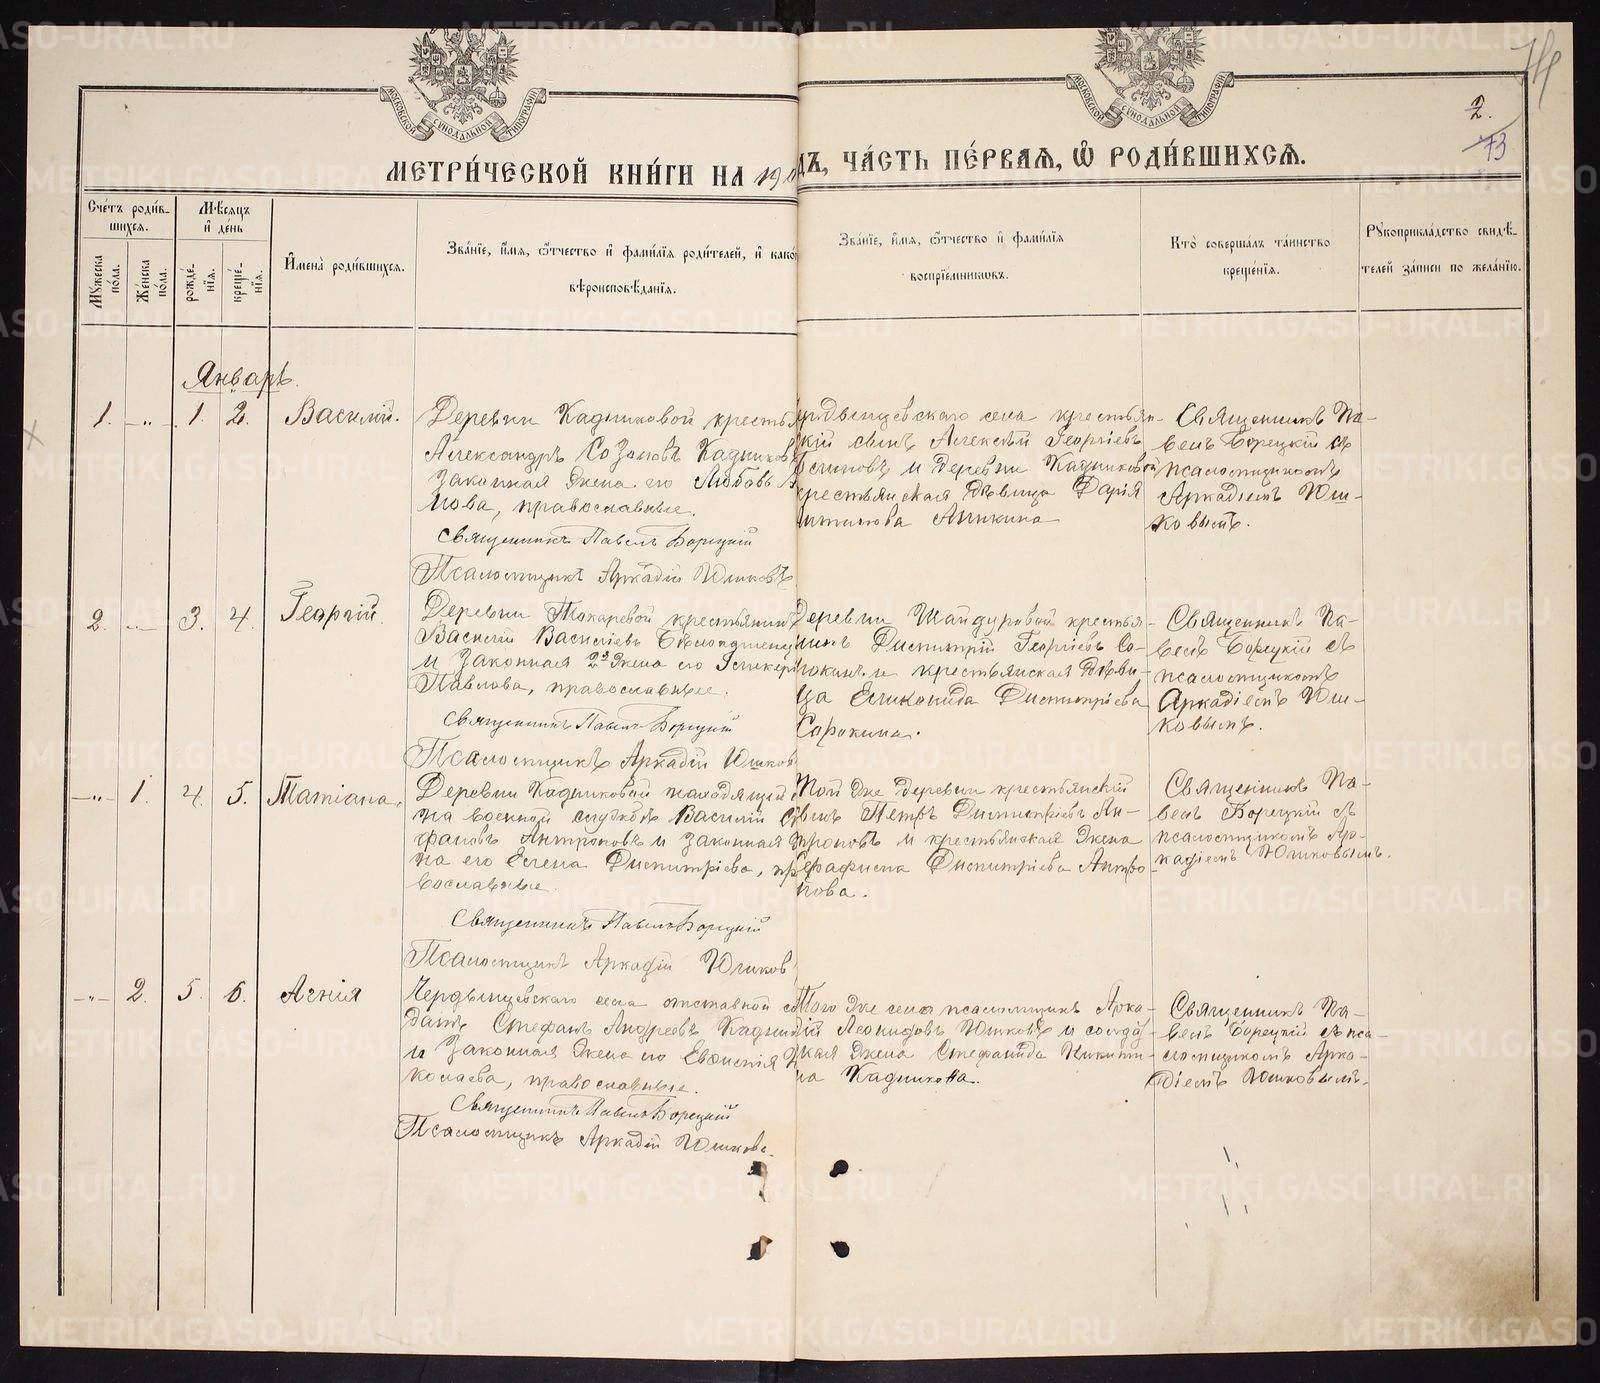 МОСКОВСКОЙ СѴНОДАЛЬНОЙ ТИПОГРАФІИ
МОСКОВСКОЙ СѴНОДАЛЬНОЙ ТИПОГРАФІИ
2.
73
МЕТРИ́ЧЕСКОЙ КНИ́ГИ НА 19 ДЪ, ЧА́СТЬ ПЕ́РВАѦ, Ѡ҆ РОДИ́ВШИХСѦ.
Сче́тъ роди́в-
шихсѧ.
Мꙋ́жеска по́ла.
Же́нска по́ла.
Мѣ́сѧцъ
и҆ де́нь
рожде́-
нїѧ.
креще́-
нїѧ.
И҆мена̀ роди́вшихсѧ.
Зва́нїе, и҆́мѧ, ѻ҆́тчество и҆ фами́лїѧ роди́телей, и҆ како́
вѣроисповѣ́данїѧ.
Зва́нїе, и҆́мѧ, ѻ҆́тчество и҆ фами́лїѧ
воспрїе́мникѡвъ.
Кто̀ соверша́лъ та́инство
креще́нїѧ.
Рꙋкоприкла́дство свидѣ́-
телей за́писи по жела́нїю.
Январь.
1. -„- 1. 2. Василій.
Деревни Кадниковой кресть
Александръ Созоновъ Кадников
законная жена его Любовь
нова, православные.
Священникъ Павелъ Борецкій
Псаломщикъ Аркадій Юшковъ
рдынцевскаго села крестьян-
кій сынъ Алексѣй Георгіевъ
и деревни Кадниковой
крестьянская дѣвица Дарія
Аникина
Священникъ Па-
велъ Борецкій съ
псаломщикомъ
Аркадіемъ Юш-
ковымъ.
2. -„- 3. 4. Георгій.
Деревни Токаревой крестьянинъ
Василій Васильевъ
и законная 2я жена его Гликерія
Павлова, православные.
Священникъ Павелъ Борецкій
Псаломщикъ Аркадій Юшков
Деревни Шайдуровой крестья-
нинъ Димитрій Георгіевъ Со-
рокинъ и крестьянская дѣви-
ца Еликонида Димитріева
Сорокина.
Священникъ Па-
велъ Борецкій съ
псаломщикомъ
Аркадіемъ Юш-
ковымъ.
-„- 1. 4. 5. Татіана.
Деревни Кадниковой находящій
на военной службѣ Василій
фановъ Антроповъ и законная
на его Елена Димитріева, пр
вославные.
Священникъ Павелъ Борецкій
Псаломщикъ Аркадій Юшков
Той же деревни крестьянскій
сынъ Петръ Димитріевъ Ан-
троповъ и крестьянская жена
Димитріева Антро-
пова.
Священникъ Па-
велъ Борецкій съ
псаломщикомъ Ар-
кадіемъ Юшковымъ.
-„- 2. 5. 6. Агнія
Чердынцевскаго села отставной со
датъ Стефанъ Андреевъ Кадник
и законная жена его Евфимія
колаева, православные.
Священникъ Павелъ Борецкій
Псаломщикъ Аркадій Юшковъ.
Того же села псаломщикъ Арка-
дій Леонидовъ Юшковъ и солдат
кая жена Стефанида Никити-
на Кадникова.
Священникъ Па-
велъ Борецкій съ пса-
ломщикомъ Арка-
діемъ Юшковымъ.
METRIKI.GASO-URAL.RU